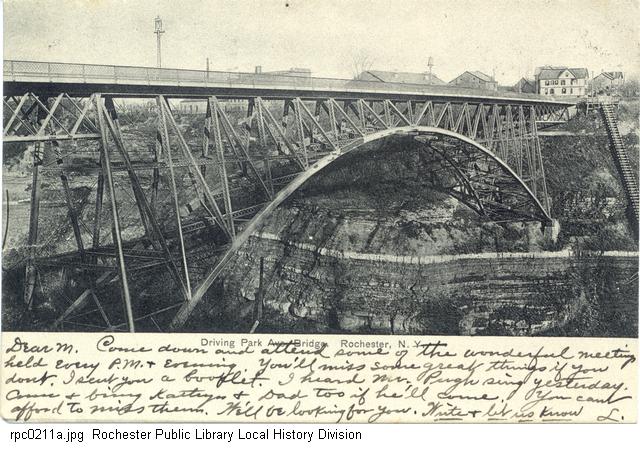 Driving Park Ave. Bridge, Rochester, N.Y.
Dear M. Come down and attend some of the wonderful meetings
held every P.M. & Evening. You'll miss some great things if you
dont. I sent you a booklet. I heard Mr. Pugh sing yesterday.
Come & bring Kathryn & Dad too if he'll come. You cant
afford to miss them. Will be looking for you. Write & let us know L.
rpc0211a.jpg Rochester Public Library Local History Division